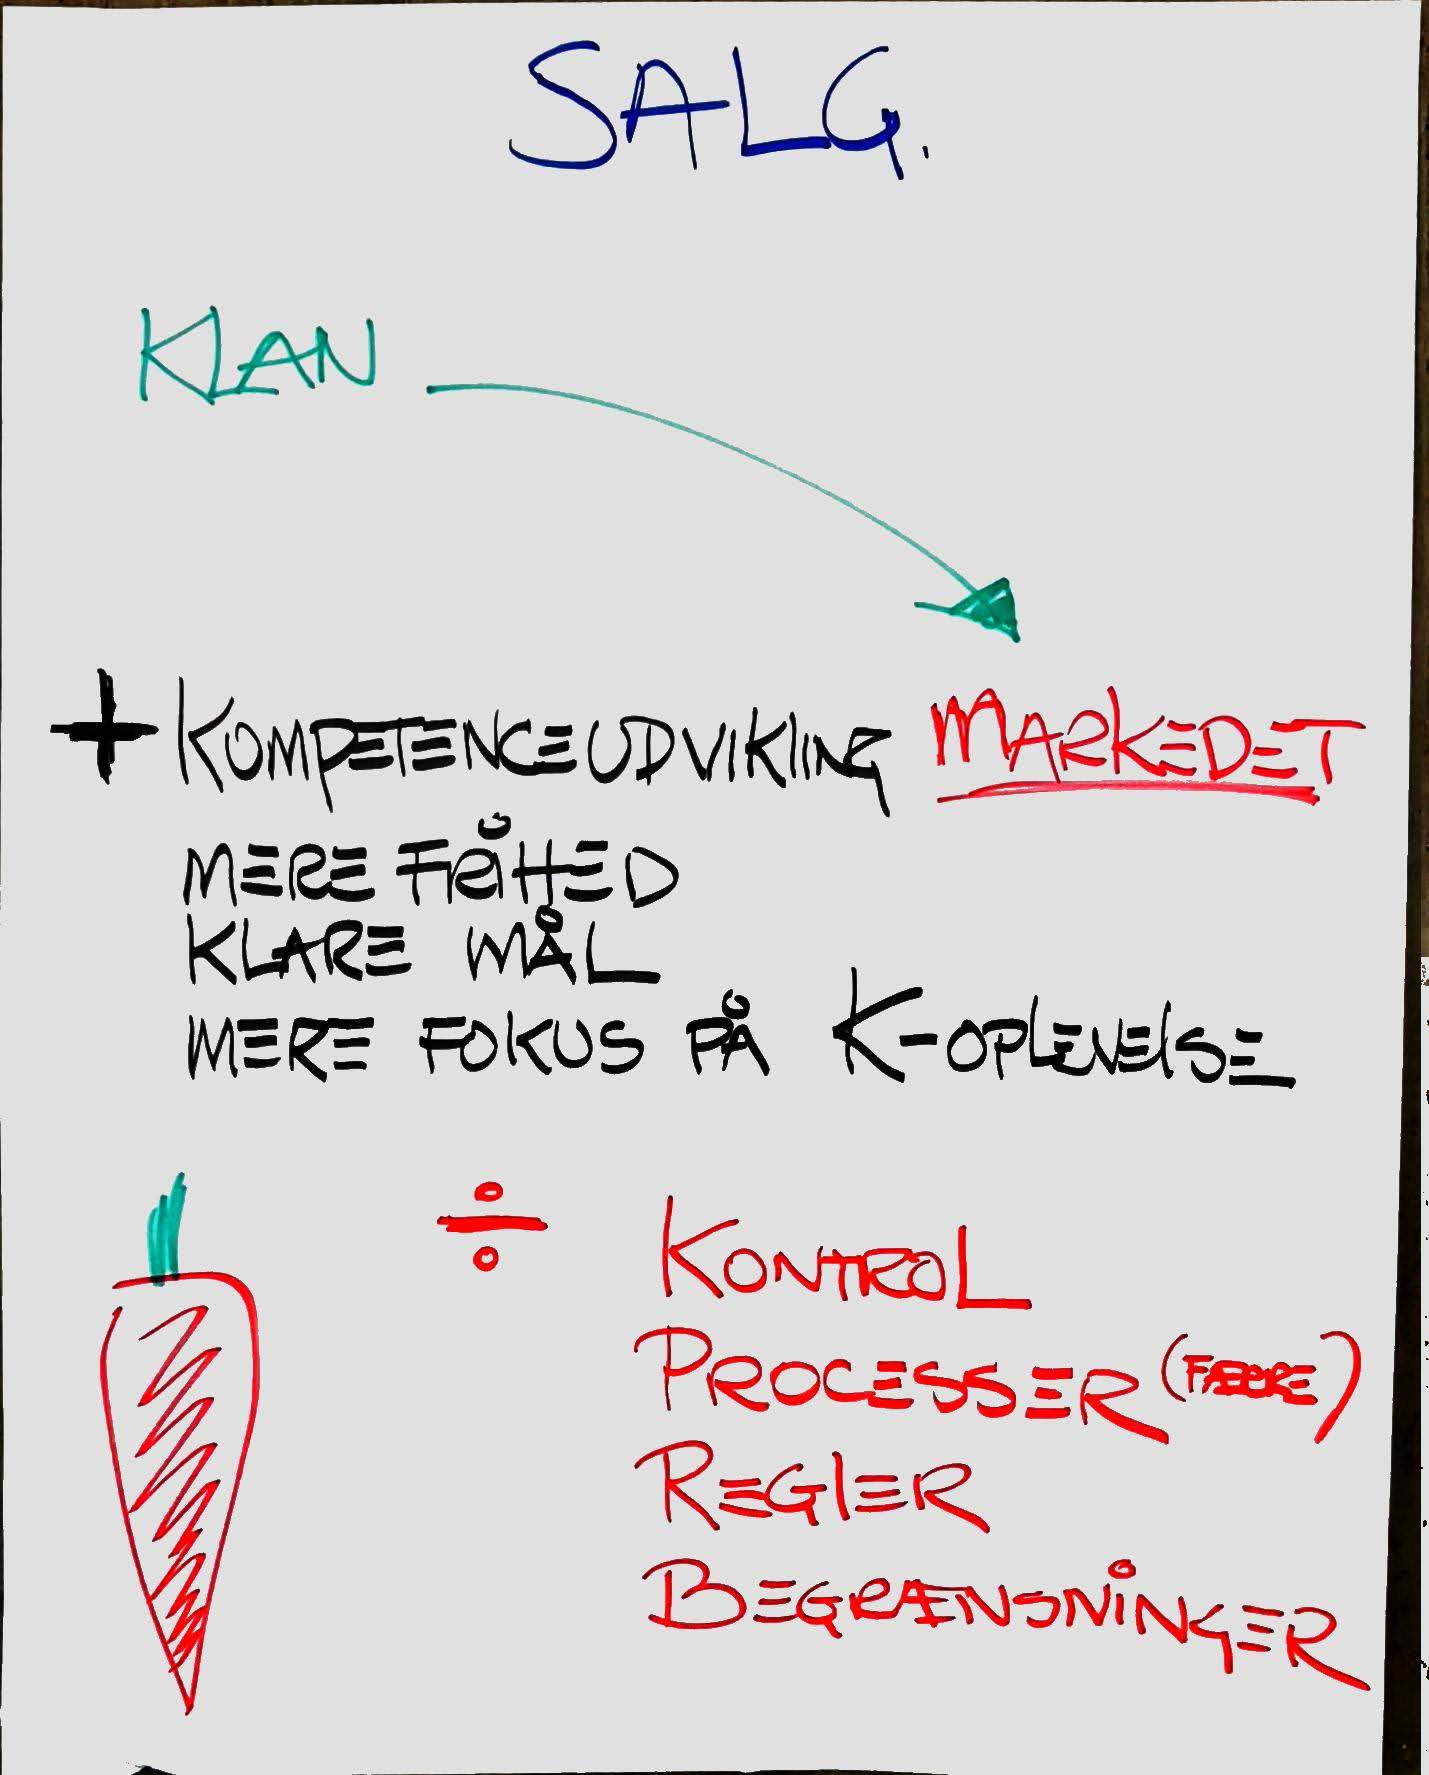 SALG.
KLAN
+ KOMPETENCEUDVIKLING MARKEDET
MERE FRIHED
KLARE MÅL
MERE FOKUS PÅ K-OPLEVELSE
÷ KONTROL
PROCESSER (FÆRRE)
REGLER
BEGRÆNSNINGER